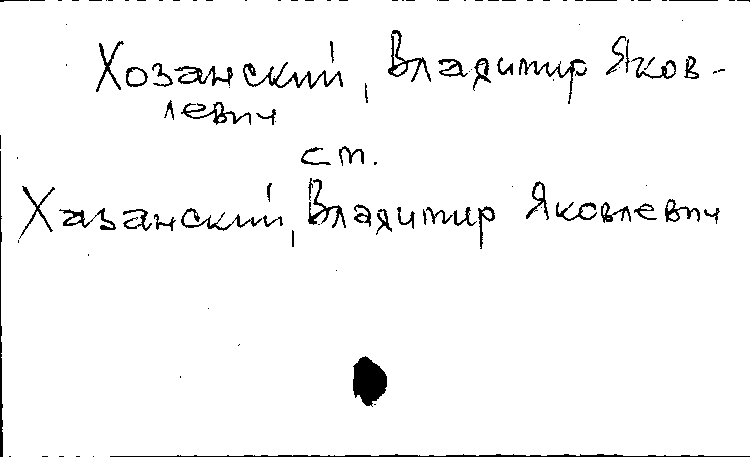 Хозанский, Владимир Яков-
левич
см.
Хазанский, Владимир Яковлевич